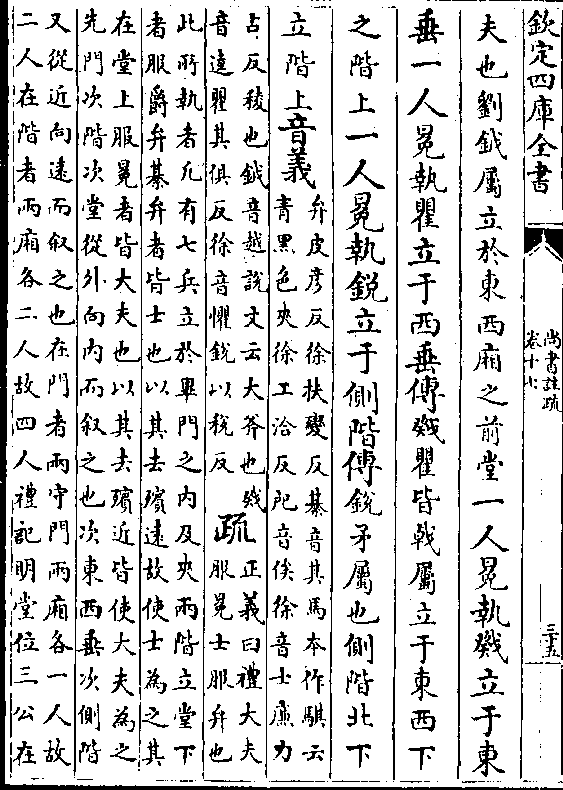 欽定四庫全書
尚書註疏
卷十七
三十五
夫也劉鉞屬立於東西廂之前堂一人冕執戣立于東
垂一人冕執瞿立于西垂傳戣瞿皆戟屬立于東西下
之階上一人冕執銳立于側階傳銳矛屬也側階北下
立階上音義
弁皮彦反徐扶變反綦音其馬本作騏云
青黑色夾徐工洽反戺音俟徐音士廉力
占反稜也鉞音越說文云大斧也戣
音逵瞿其俱反徐音懼銳以稅反
疏
正義曰禮大夫
服冕士服弁也
此所執者凡有七兵立於畢門之内及夾兩階立堂下
者服爵弁綦弁者皆士也以其去殯遠故使士為之其
在堂上服冕者皆大夫也以其去殯近皆使大夫為之
先門次階次堂從外向内而叙之也次東西垂次側階
又從近向遠而叙之也在門者兩守門兩廂各一人故
二人在階者兩廂各二人故四人禮記明堂位三公在